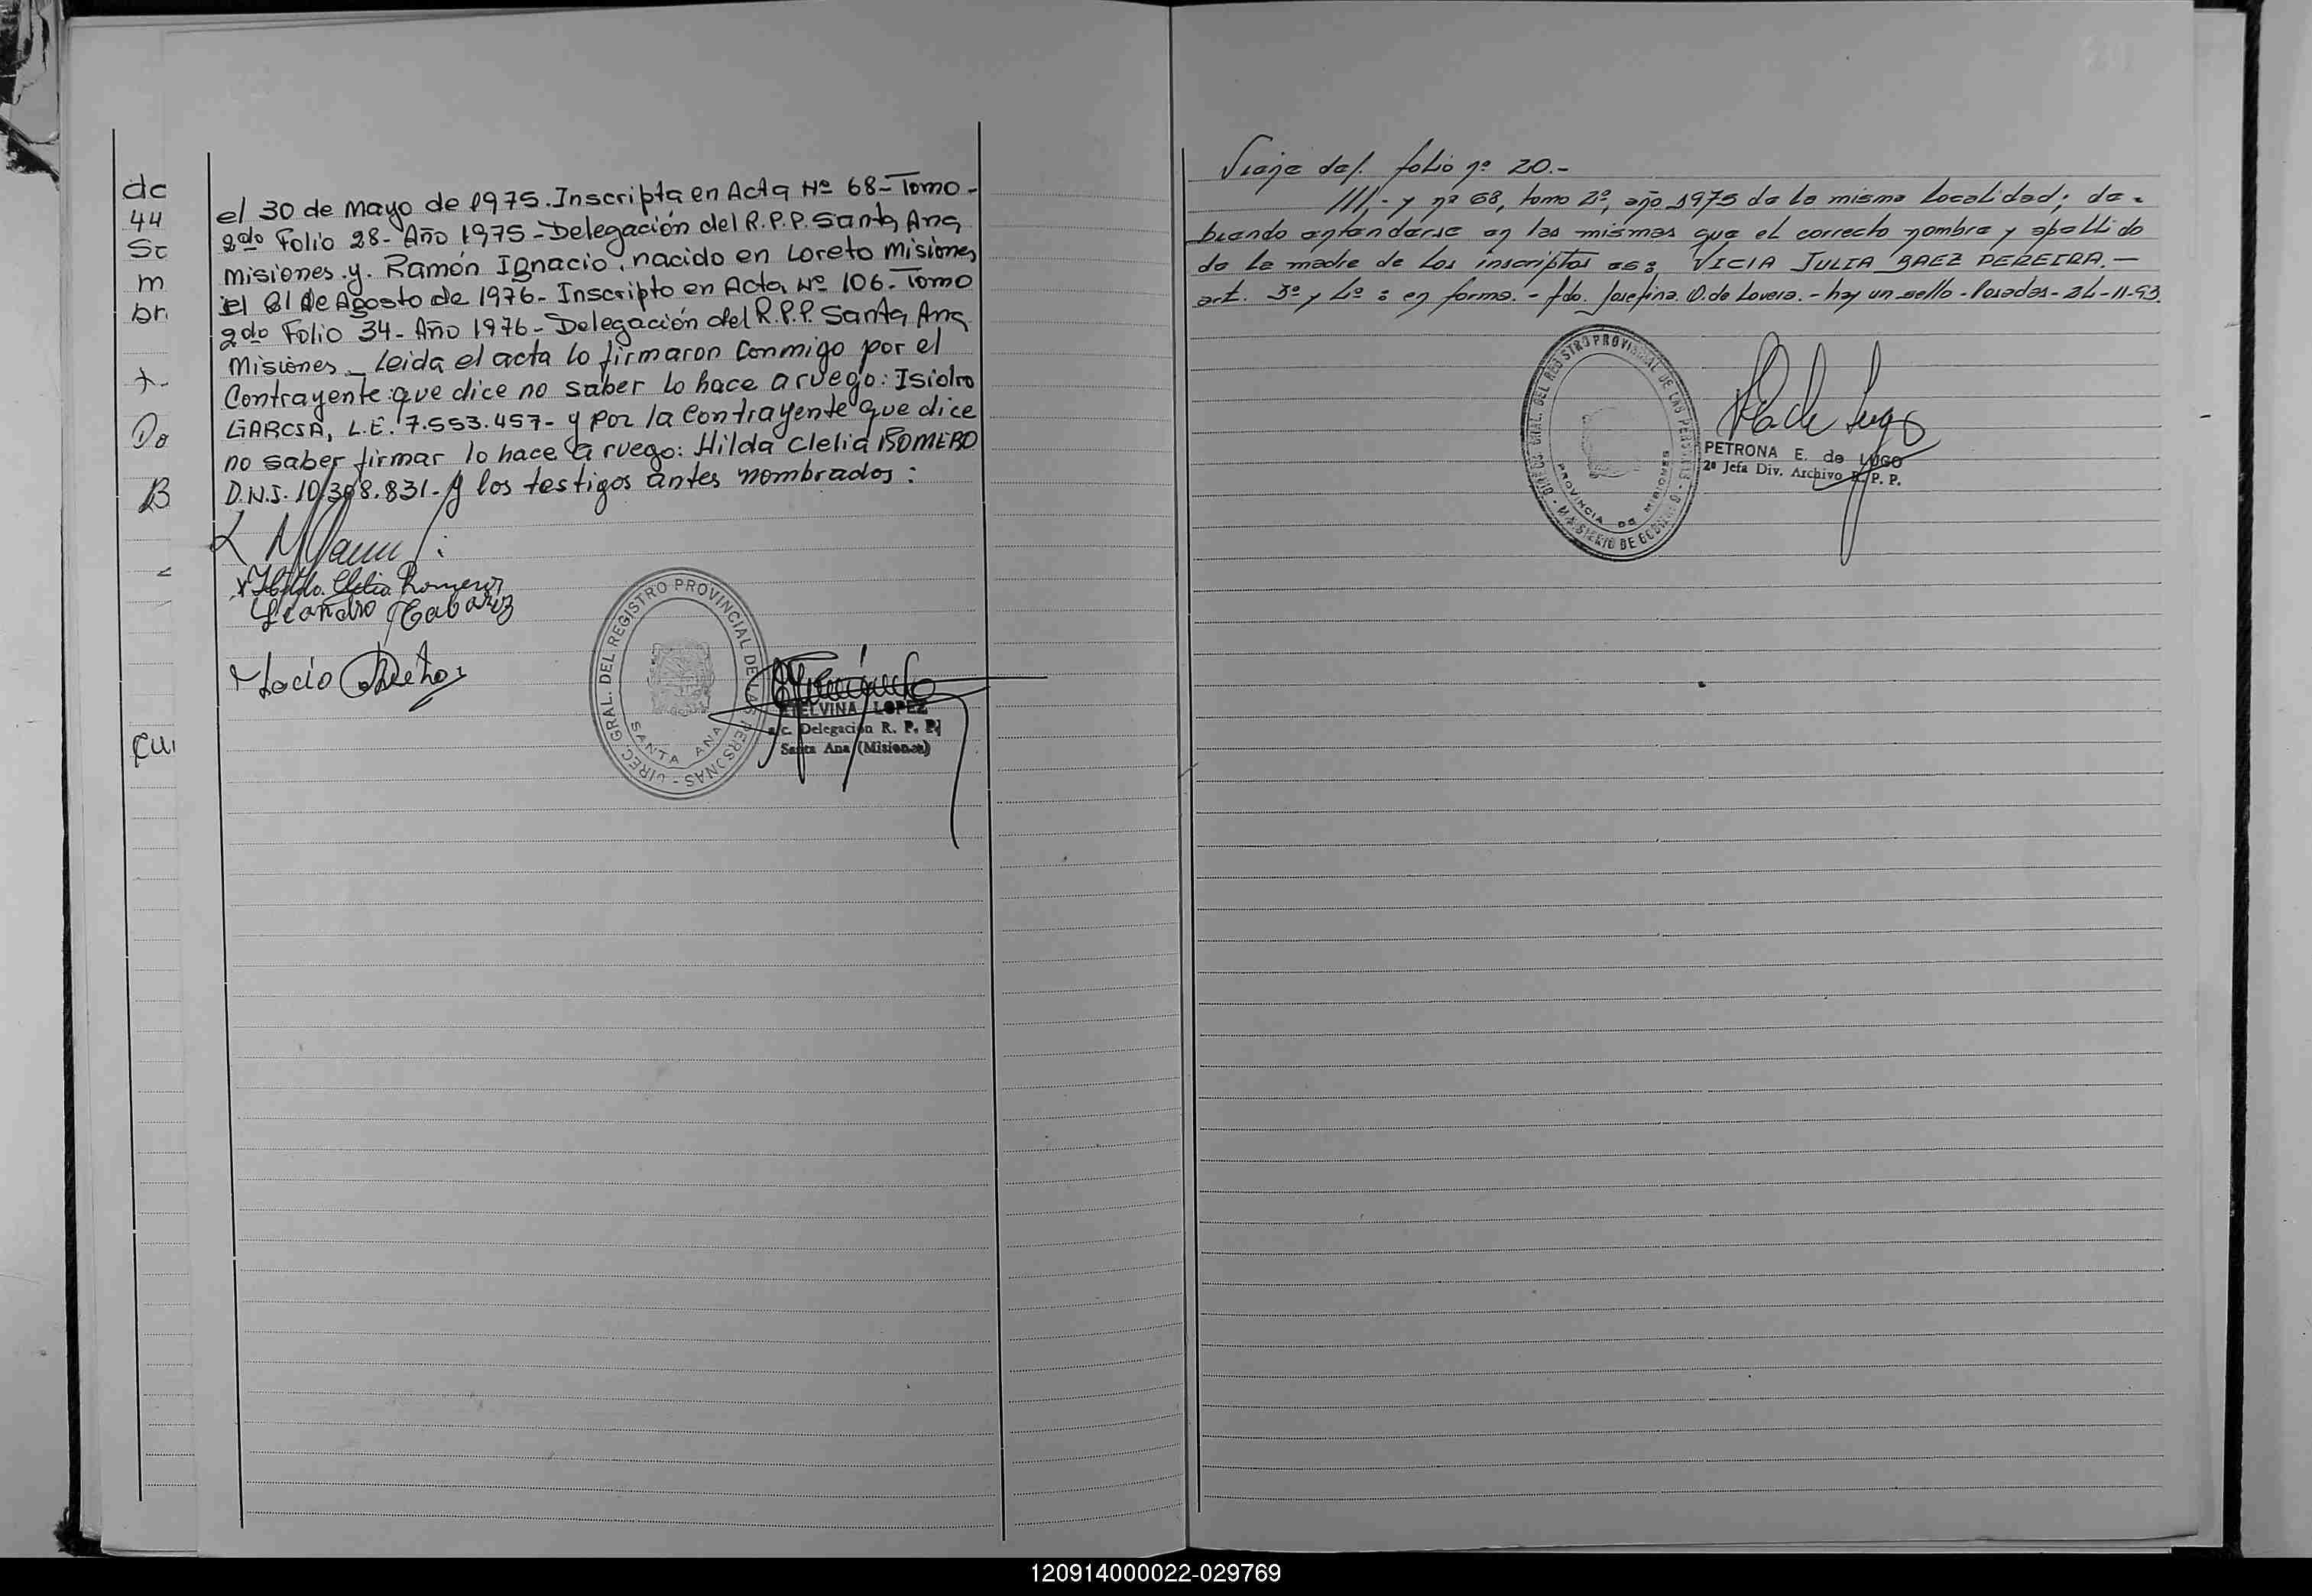 dc
44
Sc
m
br.
Do
B
cui
el 30 de Mayo de 1975. Inscripta en Acta Nº 68- Tomo-
2do Folio 28- Año 1975 - Delegación del R.P.P. Santa Ana
Misiones.y. Ramón Ignacio, nacido en Loreto Misiones
el 21 de Agosto de 1976- Inscripto en Acta Nº 106- Tomo
2do Folio 34- Año 1976- Delegación del R.P.P. Santa Ana
Misiones_ Leida el acta lo firmaron Conmigo por el
Contrayente que dice no saber lo hace a ruego: Isidro
GARCIA, L.E. 7.553.457- y por la Contrayente que dice
no saber firmar lo hace a ruego: Hilda Clelia ROMERO
D.N.I. 10/398.831- y los testigos antes nombrados:
Hilda Clelia Romero
Leandro
DIREC. GRAL. DEL REGISTRO PROVINCIAL DE LAS PERSONAS -
SANTA ANA
ETELVINA LOPEZ
a/c. Delegación R. P. P.
Santa Ana (Misiones)
Viaje del folio nº 20.-
///,- y nº 68, tomo 2º, año 1975 de la misma localidad; de-
biendo entenderse en las mismas que el correcto nombre y apellido
de la madre de los inscriptos es: VICIA JULIA BAEZ PEREIRA.—
art. 3º y 4º: en forma.- fdo. Josefina O. de Lovera.- hay un sello - Posadas- 24-11-93.
DIREC. GRAL. DEL REGISTRO PROVINCIAL DE LAS PERSONAS - MINISTERIO DE GOBIERNO
PROVINCIA DE MISIONES
PETRONA E. de LUGO
2ª Jefa Div. Archivo R. P. P.
120914000022-029769